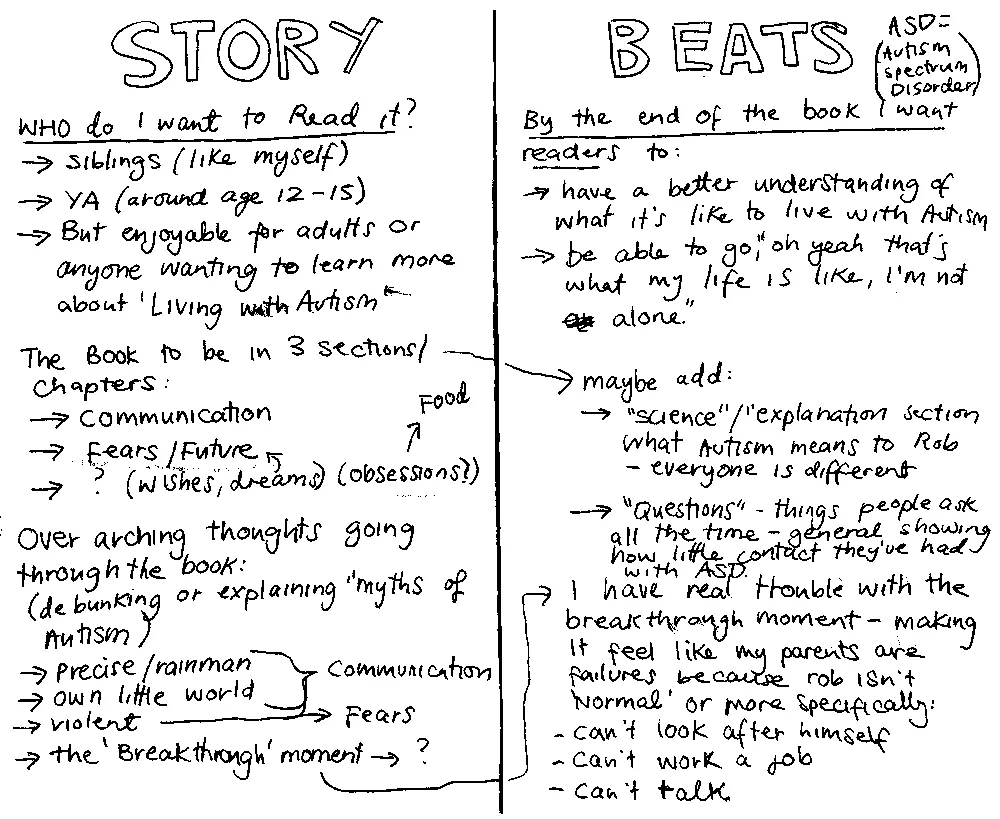 STORY
WHO do I want to Read it?
→ siblings (like myself)
→ YA (around age 12-15)
→ But enjoyable for adults or
anyone wanting to learn more
about 'Living with Autism'
The Book to be in 3 sections/
chapters:
→ Communication
Food
→ Fears/Future
→ ? (wishes, dreams) (obsessions?)
Over arching thoughts going
through the book:
(debunking or explaining "myths of
Autism)
→ Precise/rainman
→ own little world
Communication
→ violent → Fears
→ the 'Breakthrough' moment → ?
BEATS
ASD=
(Autism
spectrum
Disorder)
By the end of the book I want
readers to:
→ have a better understanding of
what it's like to live with Autism
→ be able to go, "oh yeah that's
what my life is like, I'm not
alone."
→ maybe add:
→ "science"/"explanation section
what Autism means to Rob
- everyone is different
→ "Questions" - things people ask
all the time - general showing
how little contact they've had
with ASD.
→ I have real trouble with the
breakthrough moment - making
it feel like my parents are
failures because rob isn't
'Normal' or more specifically:
- can't look after himself
- can't work a job
- can't talk.